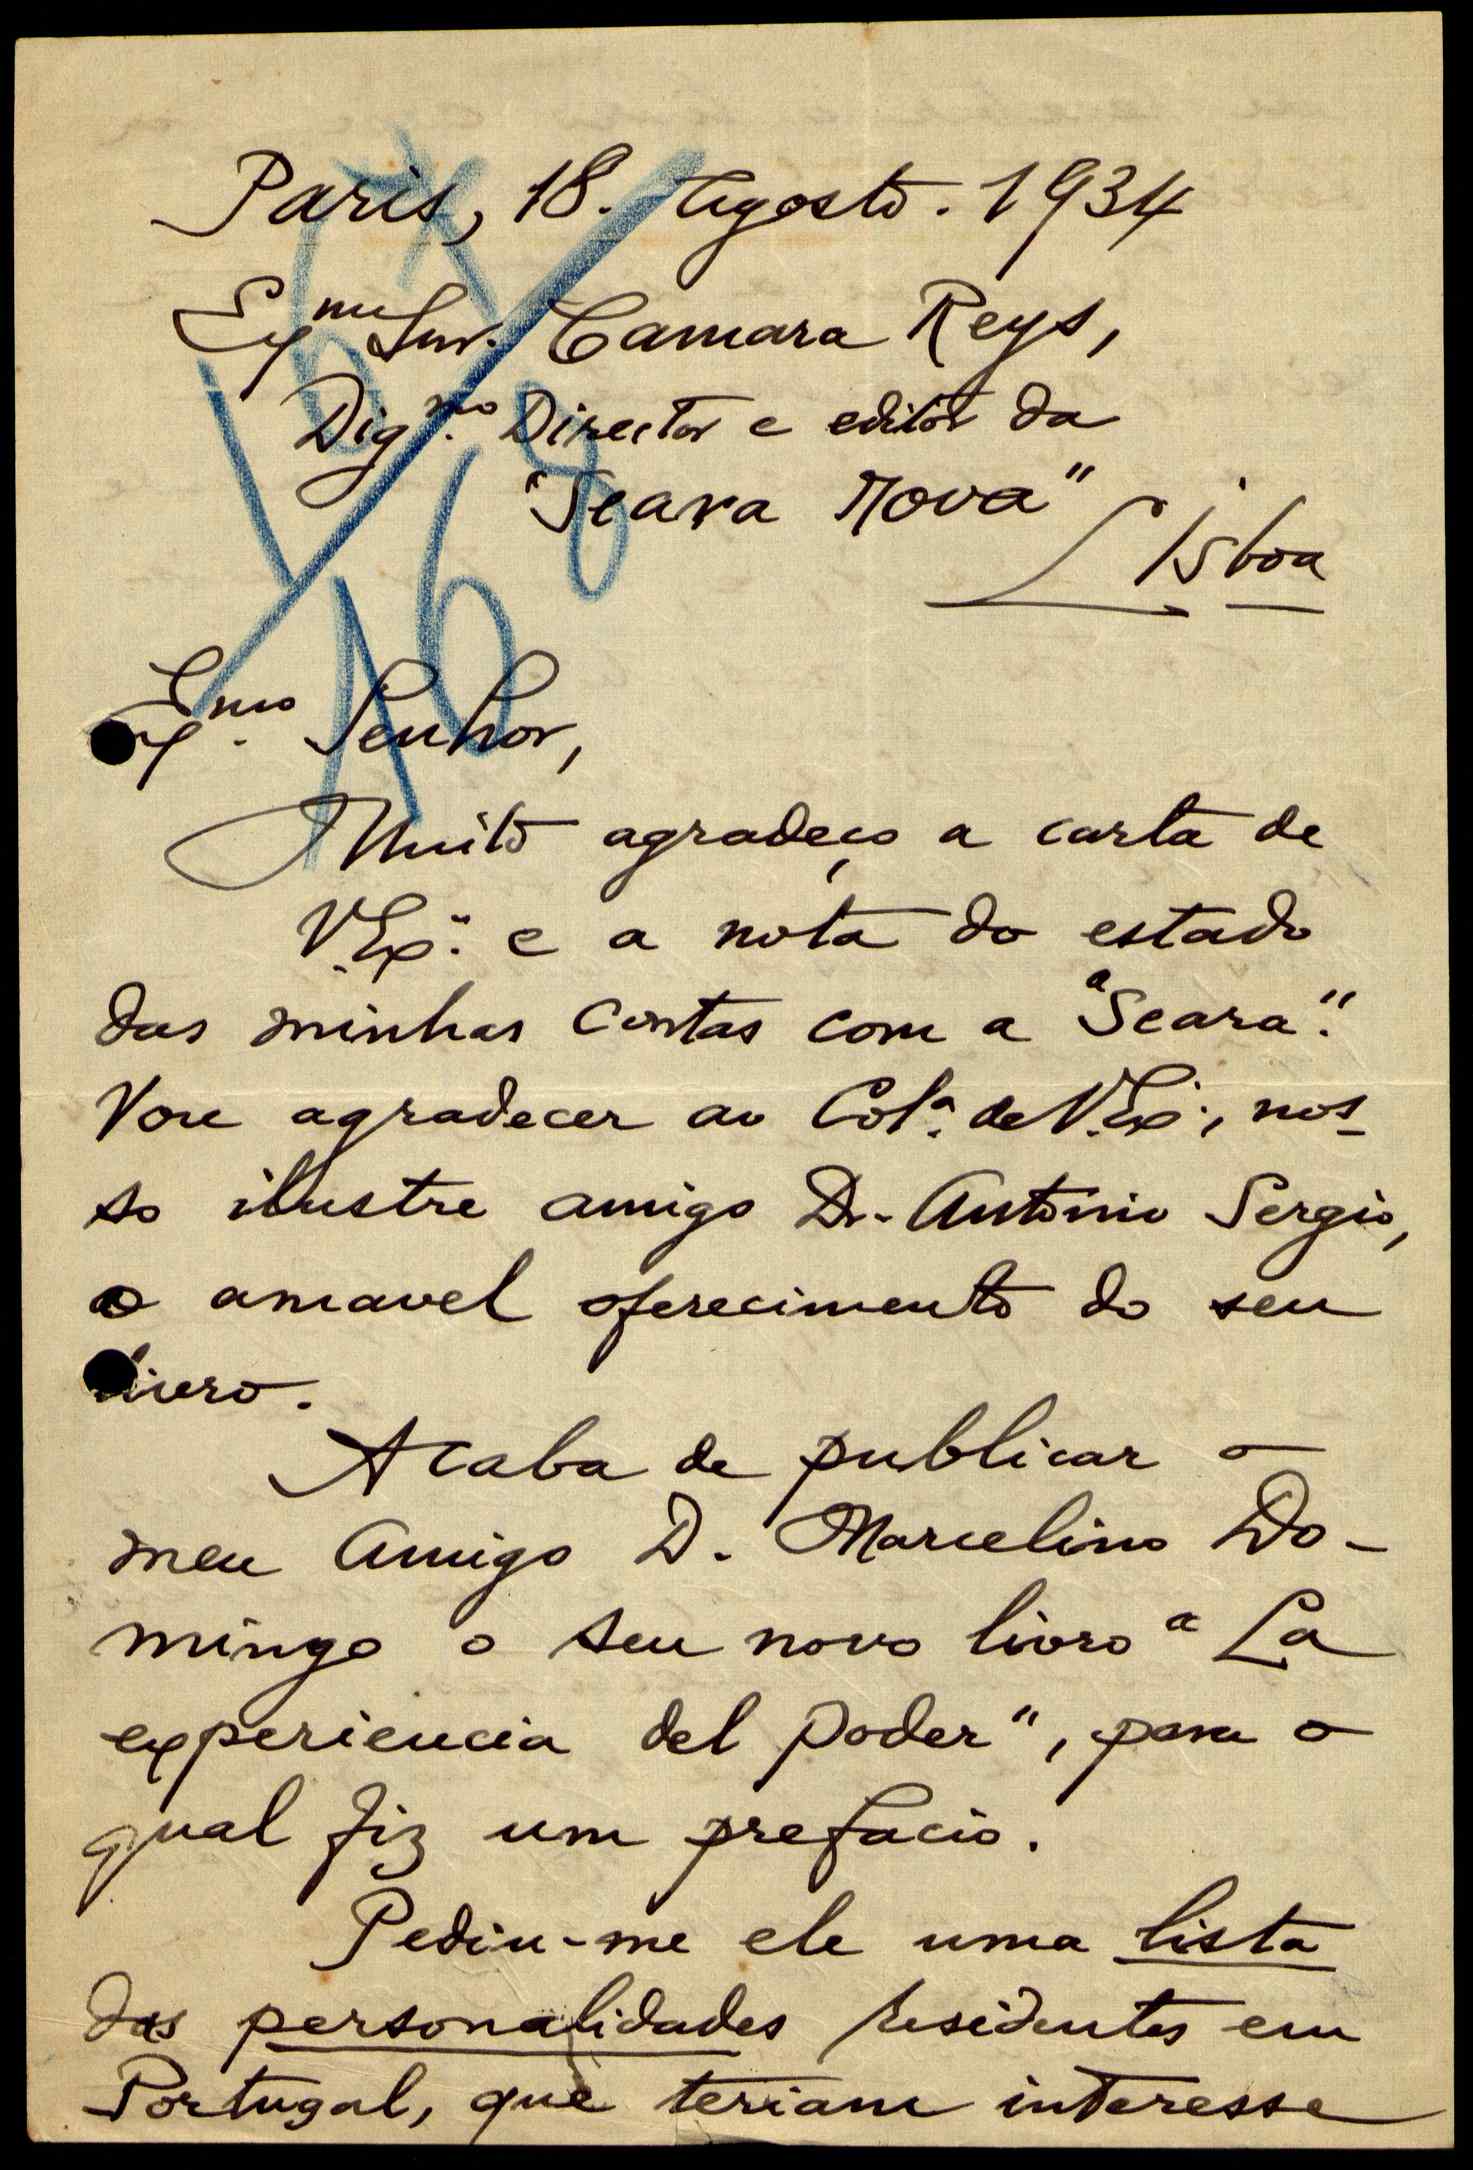 Paris, 18. Agosto. 1934
Exmo Snr. Camara Reys,
Dig.mo Director e editor da
"Seara Nova"
Lisboa
Exmo. Senhor,
Muito agradeço a carta de
V. Ex.ª e a nota do estado
das minhas contas com a "Seara".
Vou agradecer ao Col.ª de V. Ex.ª, nos-
so ilustre amigo Dr. Antonio Sergio,
o amavel oferecimento do seu
livro.
Acaba de publicar o
meu amigo D. Marcelino Do-
mingo o seu novo livro "La
experiencia del poder", para o
qual fiz um prefacio.
Pediu-me ele uma lista
das personalidades residentes em
Portugal, que teriam interesse